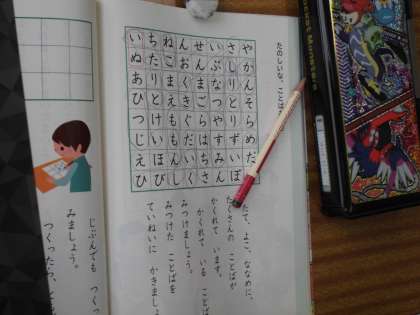 たのしいな、ことば
やかんそらめだ
さしりとりずいぼ
いぶなつやすみん
せんまごらはちさ
んおくきぐだいく
ねこまえももんし
ちたりとけいほび
いぬあひつじえひ
たて、よこ、ななめに、
たくさんの ことばが
かくれて います。
かくれて いる ことばを
みつけましょう。
みつけた ことばを
ていねいに かきましょ
じぶんでも つくっ
みましょう。
つくったら、